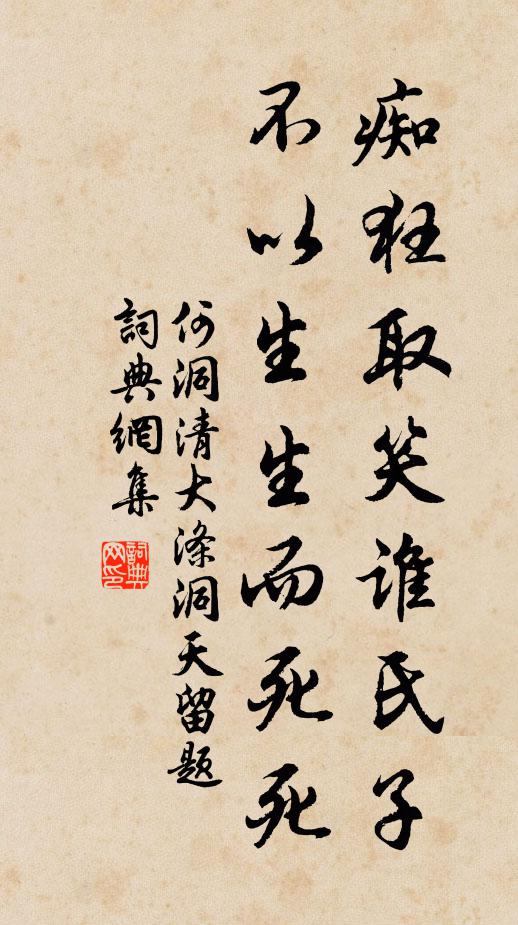 痴狂取笑谁氏子
不以生生而死死
何洞清大涤洞天留題
詞典網集
詞典网印